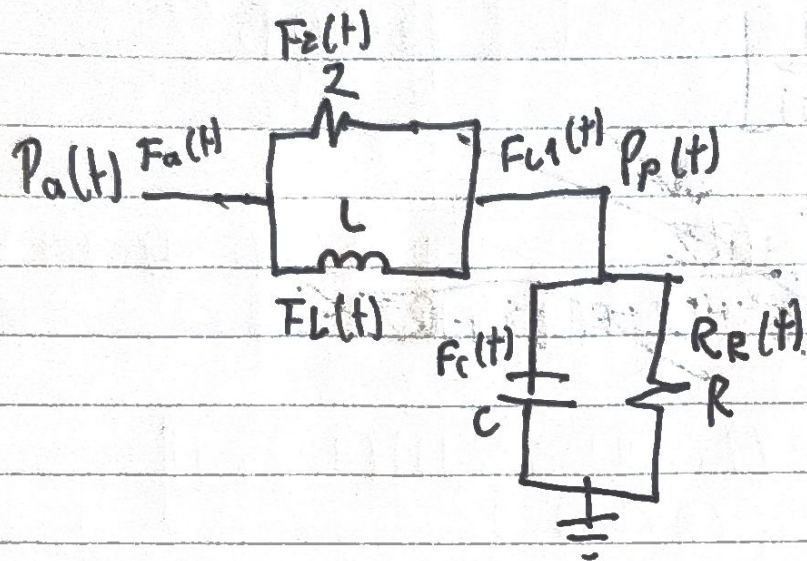 Fz(t)
Z
Pa(t) Fa(t)
FL1(t) Pp(t)
L
FL(t)
Fc(t)
RR(t)
C
R